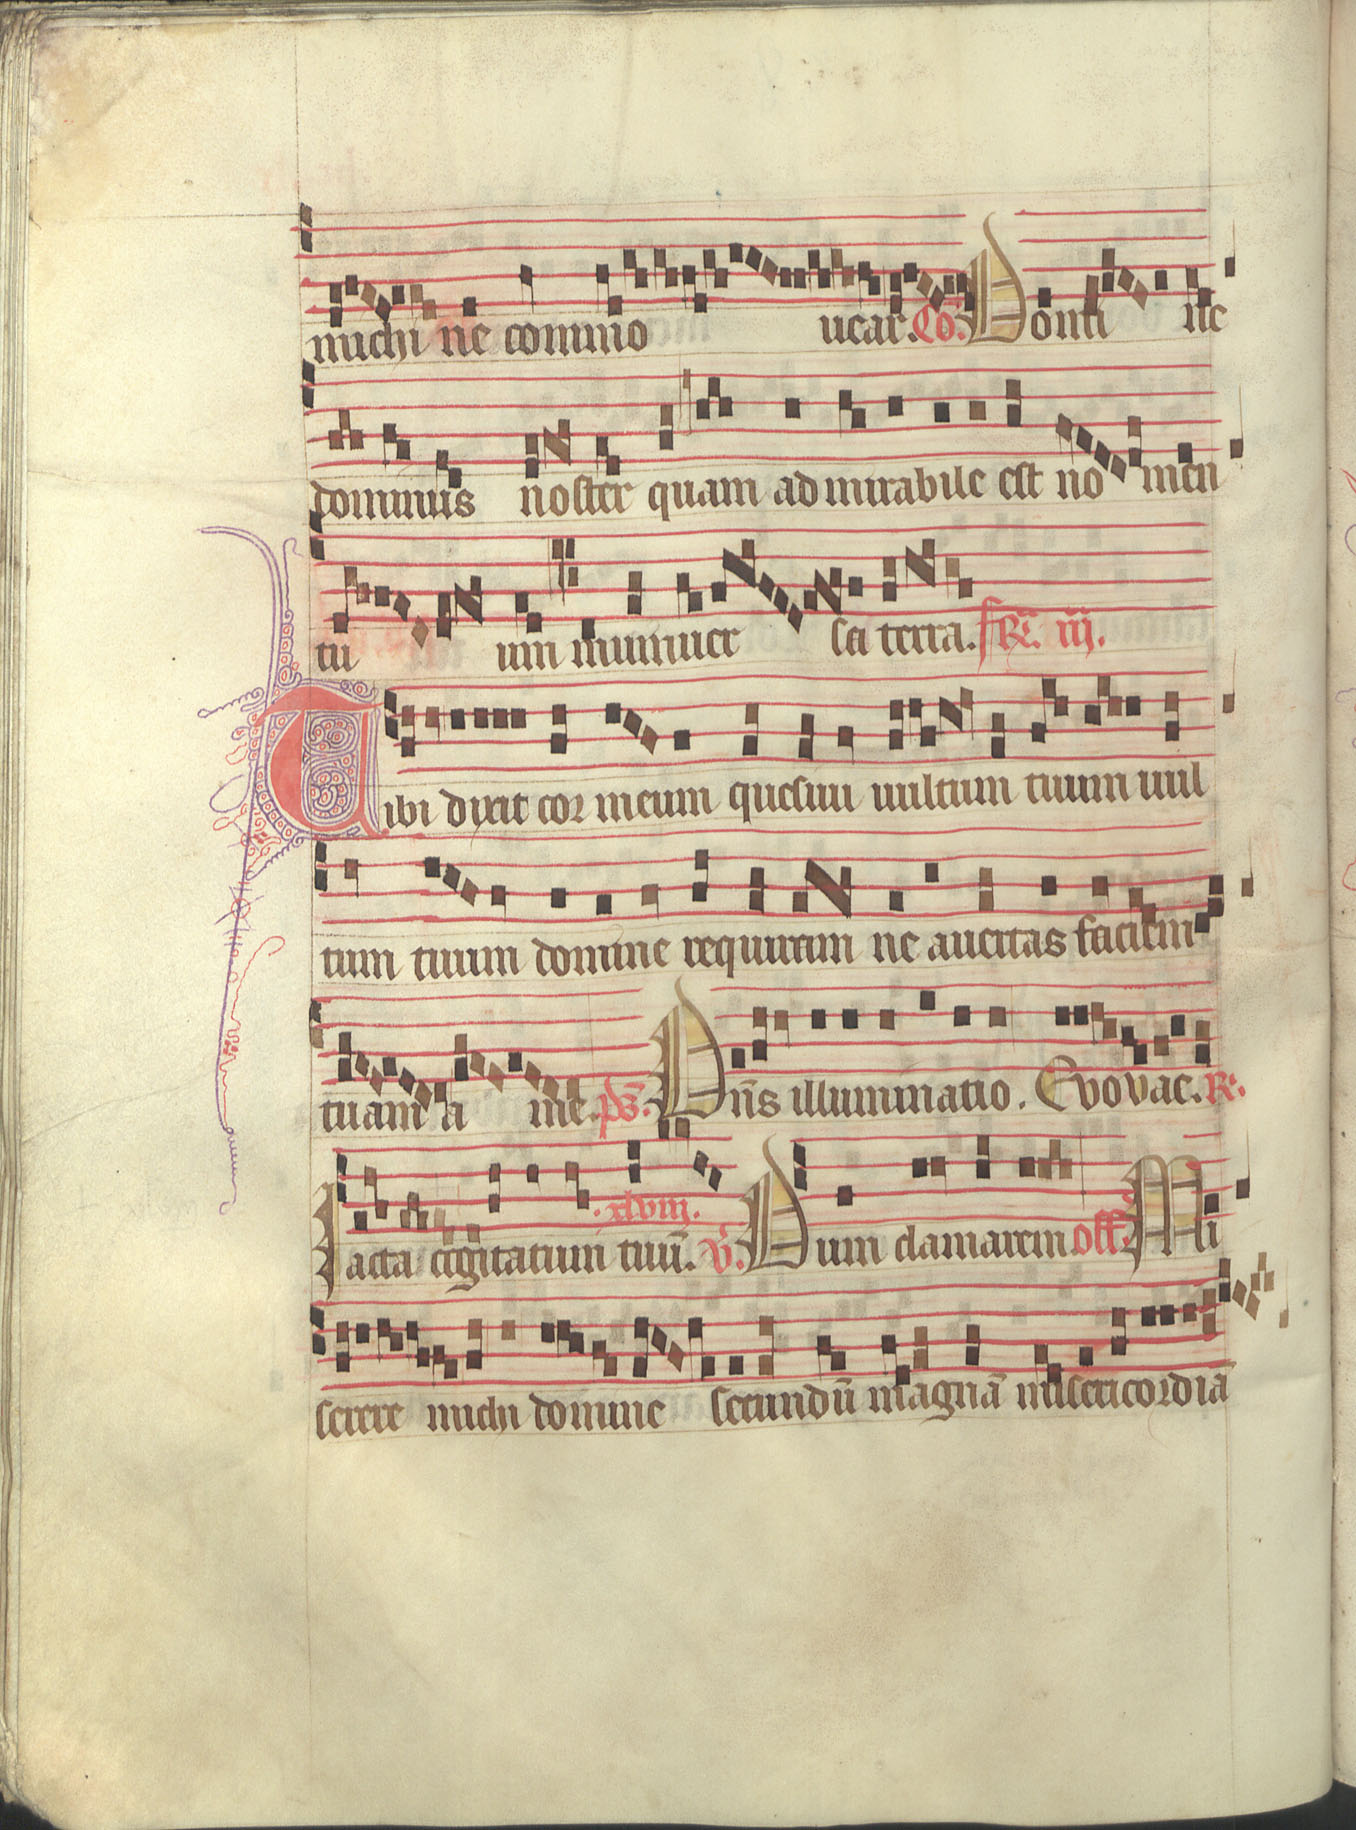 michi ne commo uear. Co. Domi ne
dominus noster quam admirabile est no men
tu um in uniuer sa terra. fR. iii.
Tibi dixit cor meum quesiui uultum tuum uul
tum tuum domine requiram ne auertas faciem
tuam a me. ps. Dñs illuminatio. Evovae. R.
Iacta cogitatum tuū. xlviii. V. Dum clamarem off. Mi
serere michi domine secundū magnā misericordiā